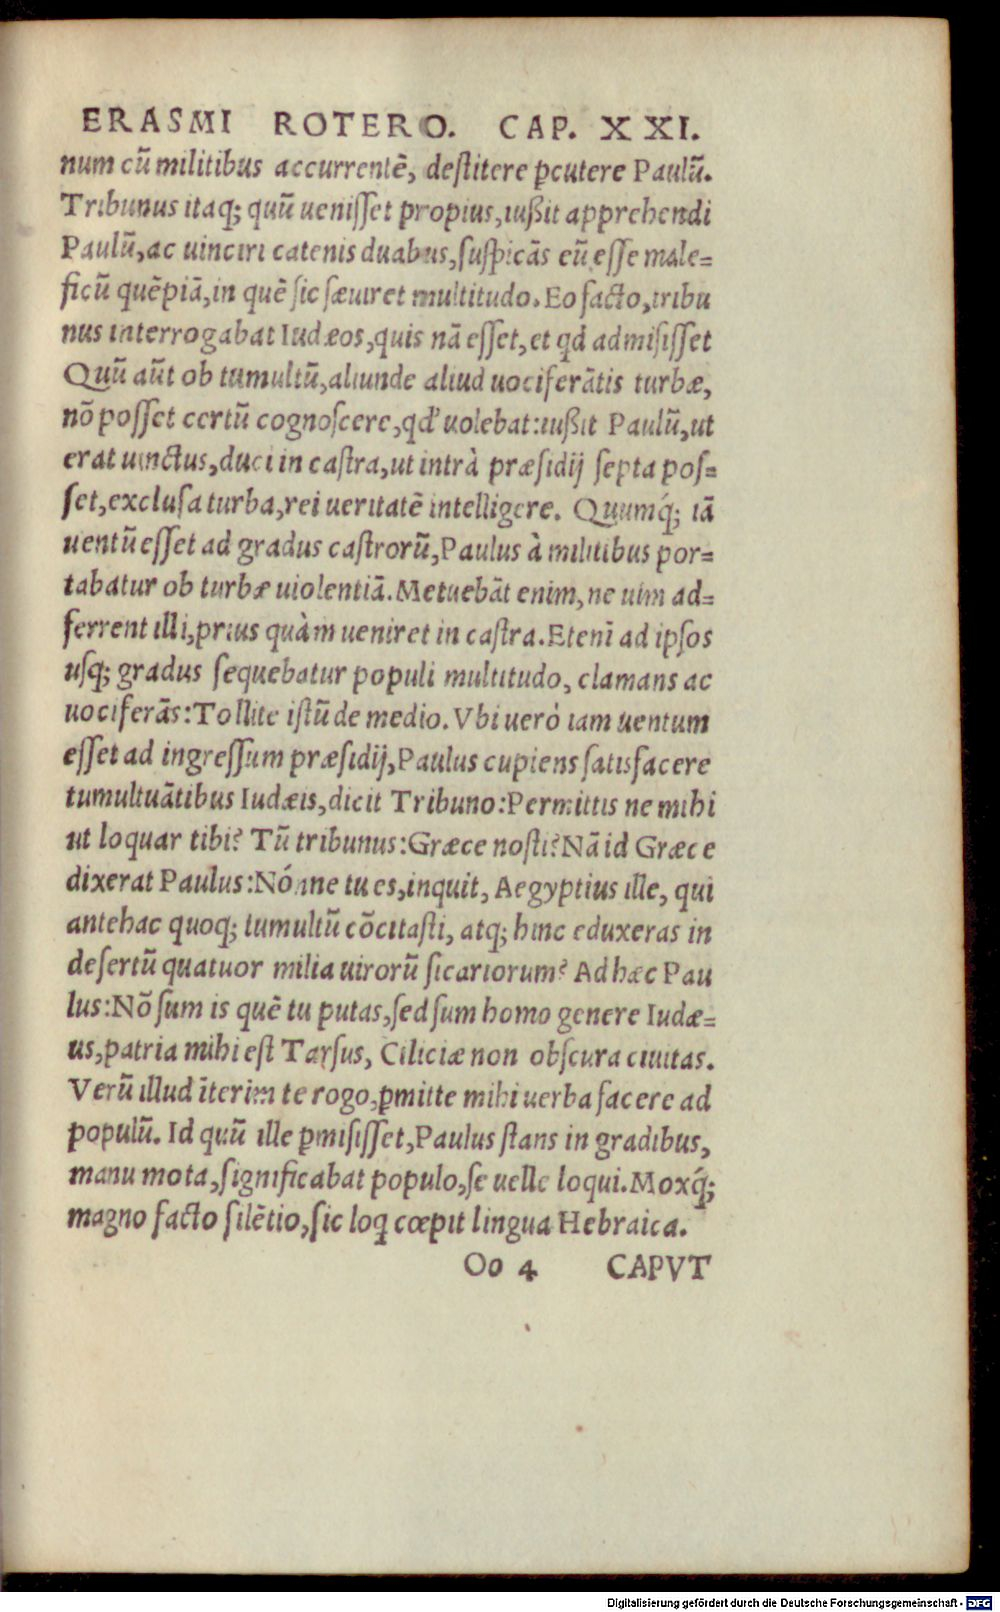 ERASMI ROTERO. CAP. XXI.
num cũ militibus accurrentẽ, destitere ꝑcutere Paulũ.
Tribunus itaq; quũ uenisset propius, iußit apprehendi
Paulũ, ac uinciri catenis duabus, suspicãs eũ esse male=
ficũ quẽpiã, in quẽ sic sæuiret multitudo. Eo facto, tribu
nus interrogabat Iudæos, quis nã esset, et qd admisisset
Quũ aũt ob tumultũ, aliunde aliud uociferãtis turbæ,
nõ posset certũ cognoscere, qd' uolebat: iußit Paulũ, ut
erat uinctus, duci in castra, ut intrà præsidij septa pos=
set, exclusa turba, rei ueritatẽ intelligere. Quumq́; iã
uentũ esset ad gradus castrorũ, Paulus à militibus por=
tabatur ob turbæ uiolentiã. Metuebãt enim, ne uim ad=
ferrent illi, prius quàm ueniret in castra. Etenĩ ad ipsos
usq; gradus sequebatur populi multitudo, clamans ac
uociferãs: Tollite istũ de medio. Vbi uerò iam uentum
esset ad ingressum præsidij, Paulus cupiens satisfacere
tumultuãtibus Iudæis, dicit Tribuno: Permittis ne mihi
ut loquar tibi? Tũ tribunus: Græce nosti? Nã id Græce
dixerat Paulus: Nónne tu es, inquit, Aegyptius ille, qui
antehac quoq; tumultũ cõcitasti, atq; hinc eduxeras in
desertũ quatuor milia uirorũ sicariorum? Ad hæc Pau
lus: Nõ sum is quẽ tu putas, sed sum homo genere Iudæ=
us, patria mihi est Tarsus, Ciliciæ non obscura ciuitas.
Verũ illud ĩterim te rogo, ꝑmitte mihi uerba facere ad
populũ. Id quũ ille ꝑmisisset, Paulus stans in gradibus,
manu mota, significabat populo, se uelle loqui. Moxq́;
magno facto silẽtio, sic loq cœpit lingua Hebraica.
Oo 4 CAPVT
Digitalisierung gefördert durch die Deutsche Forschungsgemeinschaft - DFG